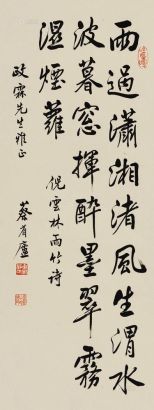 雨過瀟湘渚風生渭水
波暮窓揮醉墨翠霧
濕煙蘿
倪雲林雨竹詩
政霖先生雅正
蔡有廬